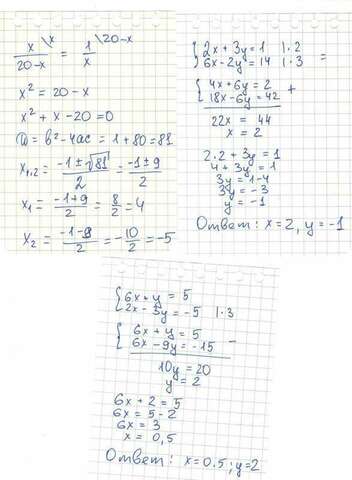 x/(20-x) \x = 1/x \20-x
x² = 20 - x
x² + x - 20 = 0
D = b² - 4ac = 1 + 80 = 81
x₁,₂ = (-1 ± √81)/2 = (-1 ± 9)/2
x₁ = (-1+9)/2 = 8/2 = 4
x₂ = (-1-9)/2 = -10/2 = -5
{2x + 3y = 1 | · 2
{6x - 2y = 14 | · 3 =
{4x + 6y = 2
{18x - 6y = 42 +
22x = 44
x = 2
2 · 2 + 3y = 1
4 + 3y = 1
3y = 1-4
3y = -3
y = -1
Ответ: x = 2, y = -1
{6x + y = 5
{2x - 3y = -5 | · 3
{6x + y = 5
{6x - 9y = -15 -
10y = 20
y = 2
6x + 2 = 5
6x = 5 - 2
6x = 3
x = 0,5
Ответ: x = 0.5; y = 2